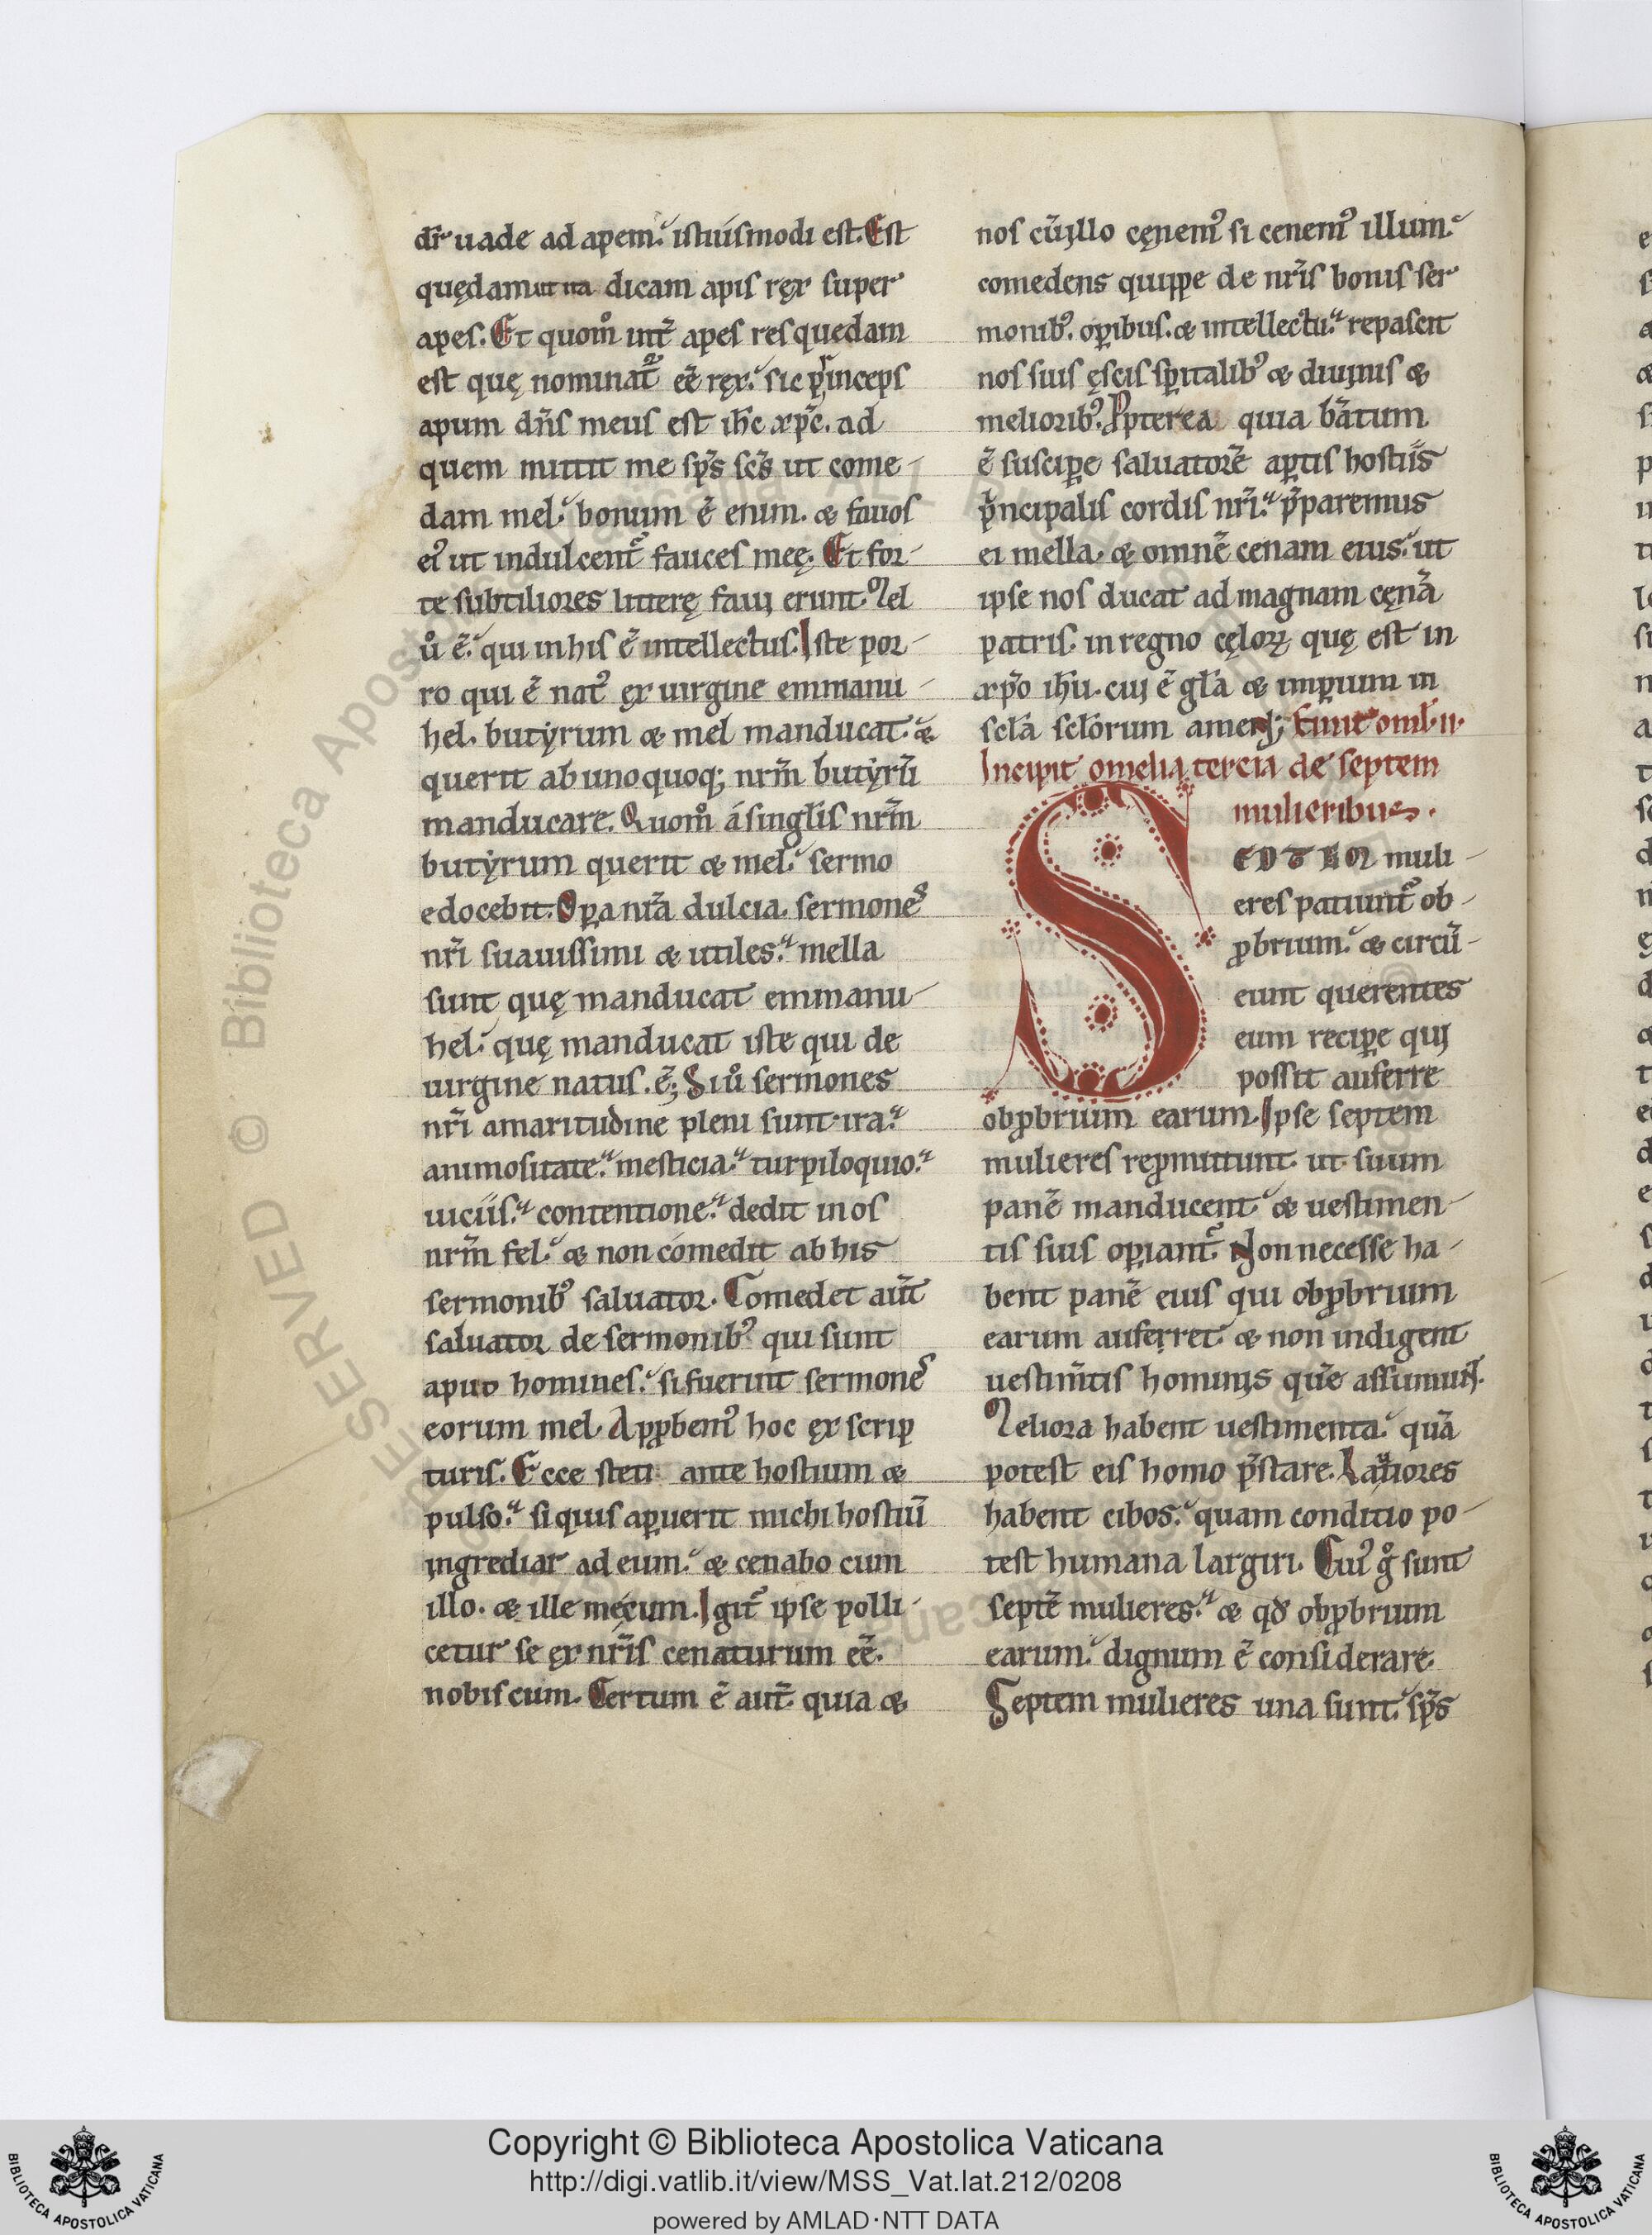 dr̄ uade ad apem. istiusmodi est. Est
quędam ut ita dicam apis ręx super
apes. Et quom̊ int̄ apes res quedam
est quę nominat᷑ eē ręx. sic princeps
apum dn̄s meus est ih̄c xp̄c. ad
quem mittit me sp̄s sc̄s ut come-
dam mel. bonum ē enim. & fauos
ei᾽ ut indulcent᷑ fauces meę. Et for-
te subtiliores litterę faui erunt. Mel
ů ē. qui in his ē intellectus. Iste por-
ro qui ē nat᾽ ęx uirgine emmanu-
hel. butyrum & mel manducat. &
querit ab unoquoq; nrm̄ butyrū
manducare. Quom̊ á singlīs nrm̄
butyrum querit & mel. sermo
edocebit. Oꝑa nrā dulcia. sermones
nrī suauissimi & utiles. mella
sunt quę manducat emmanu-
hel. quę manducat iste qui de
uirgine natus. ē; Si ů sermones
nrī amaritudine pleni sunt. ira.
animositate. mesticia. turpiloquio.
uiciis. contentione. dedit in os
nrm̄ fel. & non comedit ab his
sermonib᾽ saluator. Comedet aut̄
saluator de sermonib᾽ qui sunt
apud homines. si fuerint sermones
eorum mel. Apꝓbem᾽ hoc ęx scrip
turis. Ecce steti ante hostium &
pulso. si quis aꝑuerit michi hostiū
ingrediar ad eum. & cenabo cum
illo. & ille mecum. Igit᷑ ipse polli-
cetur se ęx nrīs cenaturum eē.
nobiscum. Certum ē aut̄. quia &
nos cū illo cęnem᾽ si cenem᾽ illum.
comedens quippe de nrīs bonis ser
monib᾽. oꝑibus. & intellectu. repascit
nos suis ęscis sꝑitalib᾽ & diuinis &
meliorib᾽. Ꝓpterea quia bātum
ē susciꝑe saluatorē aꝑtis hostiis
principalis cordis nrī. p̄paremus
ei mella. & omnē cenam eius. ut
ipse nos ducat ad magnam cęnā
patris. in regno cęloꝝ quę est in
xp̄o ih̄u. cui ē glā & imꝑium in
sclā sclōrum amen; Finit omīl. ii.
Incipit omelia tercia de septem
mulieribus.
SEPTEM muli-
eres patiunt᷑ ob-
ꝓbrium. & circū-
eunt querentes
eum reciꝑe qui
possit auferre
obꝓbrium earum. Ipse septem
mulieres reꝓmittunt. ut suum
panē manducent. & uestimen-
tis suis oꝑiant᷑. Non necesse ha-
bent panē eius qui obꝓbrium
earum auferret. & non indigent
uestim̄tis hominis quē assumunt.
Meliora habent uestimenta. quā
potest eis homo p̄stare. Latiores
habent cibos. quam conditio po-
test humana largiri. Cui᾽ g̊ sunt
septē mulieres. & qđ obꝓbrium
earum. dignum ē considerare.
Septem mulieres una sunt. sp̄s
Copyright © Biblioteca Apostolica Vaticana
http://digi.vatlib.it/view/MSS_Vat.lat.212/0208
powered by AMLAD·NTT DATA
BIBLIOTECA APOSTOLICA VATICANA
BIBLIOTECA APOSTOLICA VATICANA